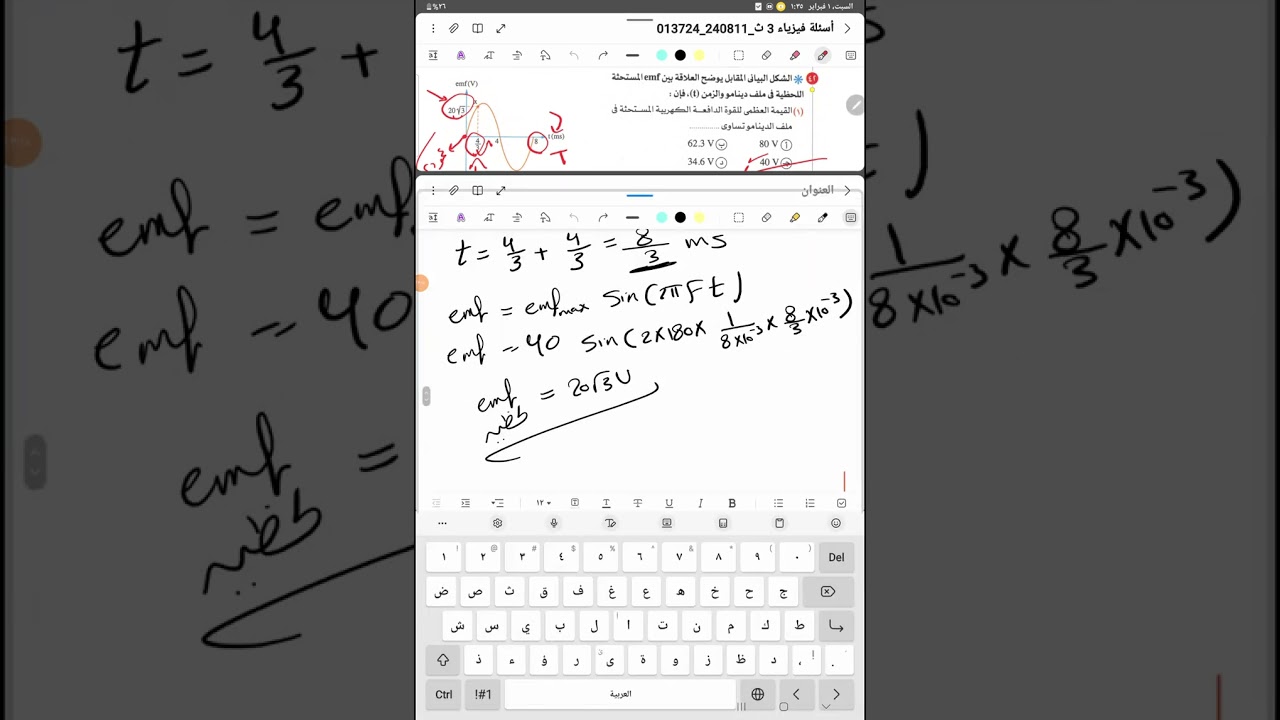 السبت، ١ فبراير ١:٣٥
٢٦%
أسئلة فيزياء 3 ث_240811_013724
٤٢ الشكل البيانى المقابل يوضح العلاقة بين emf المستحثة
اللحظية فى ملف دينامو والزمن (t)، فإن :
(١) القيمة العظمى للقوة الدافعة الكهربية المستحثة فى
ملف الدينامو تساوى ..............
أ 80 V
ب 62.3 V
ج 40 V
د 34.6 V
emf(V)
20√3
4/3
4
8
t(ms)
T
العنوان
t = 4/3 + 4/3 = 8/3 ms
emf = emf max sin(2πft)
emf = 40 sin(2×180× 1/8×10⁻³ × 8/3 ×10⁻³)
emf = 20√3 V
t = 4/3 +
emf = emf
emf = 40
1/8×10⁻³ × 8/3 ×10⁻³)
emf =
١٢
T
T
U
I
B
١ ٢ ٣ ٤ ٥ ٦ ٧ ٨ ٩ ٠ Del
ض ص ث ق ف غ ع ه خ ح ج
ش س ي ب ل ا ت ن م ك ط
ذ ء ؤ ر ى ة و ز ظ د ، .
Ctrl !#1 العربية